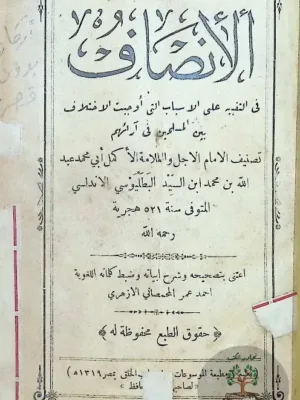 الأنصاف
في التنبيه على الاسباب التي أوجبت الاختلاف
بين المسلمين في آرائهم
تصنيف الامام الاجل والعلامة الأكمل أبي محمد عبد
الله بن محمد ابن السيد البطليوسي الاندلسي
المتوفى سنة ٥٢١ هجرية
رحمه الله
اعتنى بتصحيحه وشرح ابياته وضبط كلماته اللغوية
احمد عمر المحمصاني الازهري
﴿ حقوق الطبع محفوظة له ﴾
بمطبعة الموسوعات الخلق بمصر ١٣١٩ ه